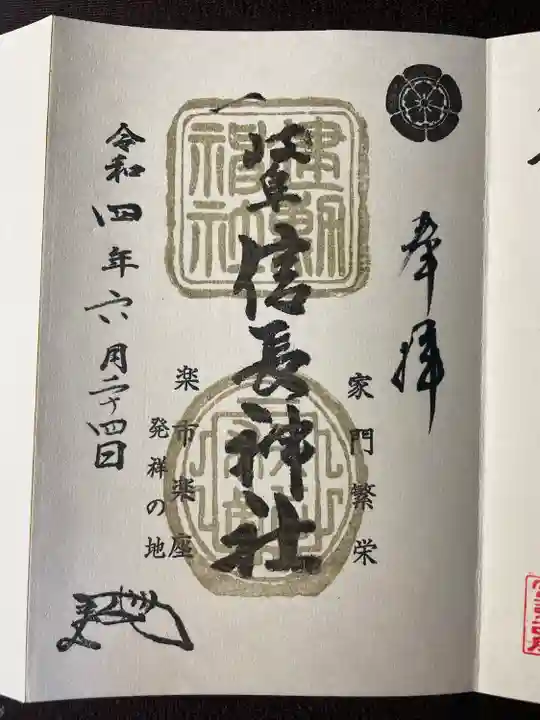 奉拝
家門繁栄
建勲
神社
岐阜信長神社
楽市楽座
発祥の地
令和四年六月二十四日